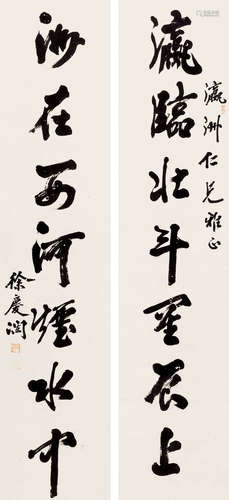 瀛臨壮斗星辰上
瀛洲仁兄雅正
洲在西河煙水中
徐慶